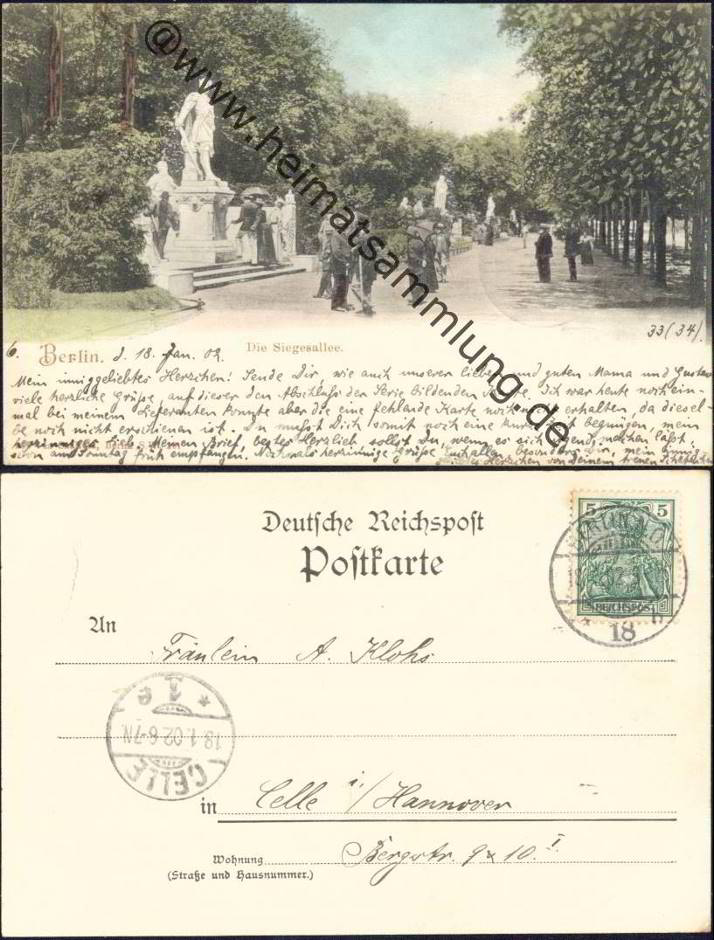 @www.heimatsammlung.de
33(34).
6. Berlin. d. 18. Jan. 02. Die Siegesallee.
Mein inniggeliebtes Herzchen! Sende Dir, wie auch unserer lieben und guten Mama und Gustav
viele herzliche Grüße auf dieser den Abschluß der Serie bildenden Karte. Ich war heute noch ein-
mal bei meinem Lieferanten konnte aber die eine fehlende Karte noch nicht erhalten, da diesel-
be noch nicht erschienen ist. Du mußt Dich somit noch eine kurze Zeit begnügen, mein
herzinniges Lieb. Meinen Brief, bestes Herzlieb, sollst Du, wenn es sich irgend machen läßt,
schon am Sonntag früh empfangen! Nochmals herzinnige Grüße Euch allen, besonders Dir, mein innig
Herzchen von Deinem treuen
Deutsche Reichspost
Postkarte
5 5
REICHSPOST
BERLIN N.O.
18
An
Fräulein A. Klohs
CELLE
18.1.02.6-7N.
* 1e
in Celle i/Hannover
Wohnung Bergstr. 9 & 10. I
(Straße und Hausnummer.)